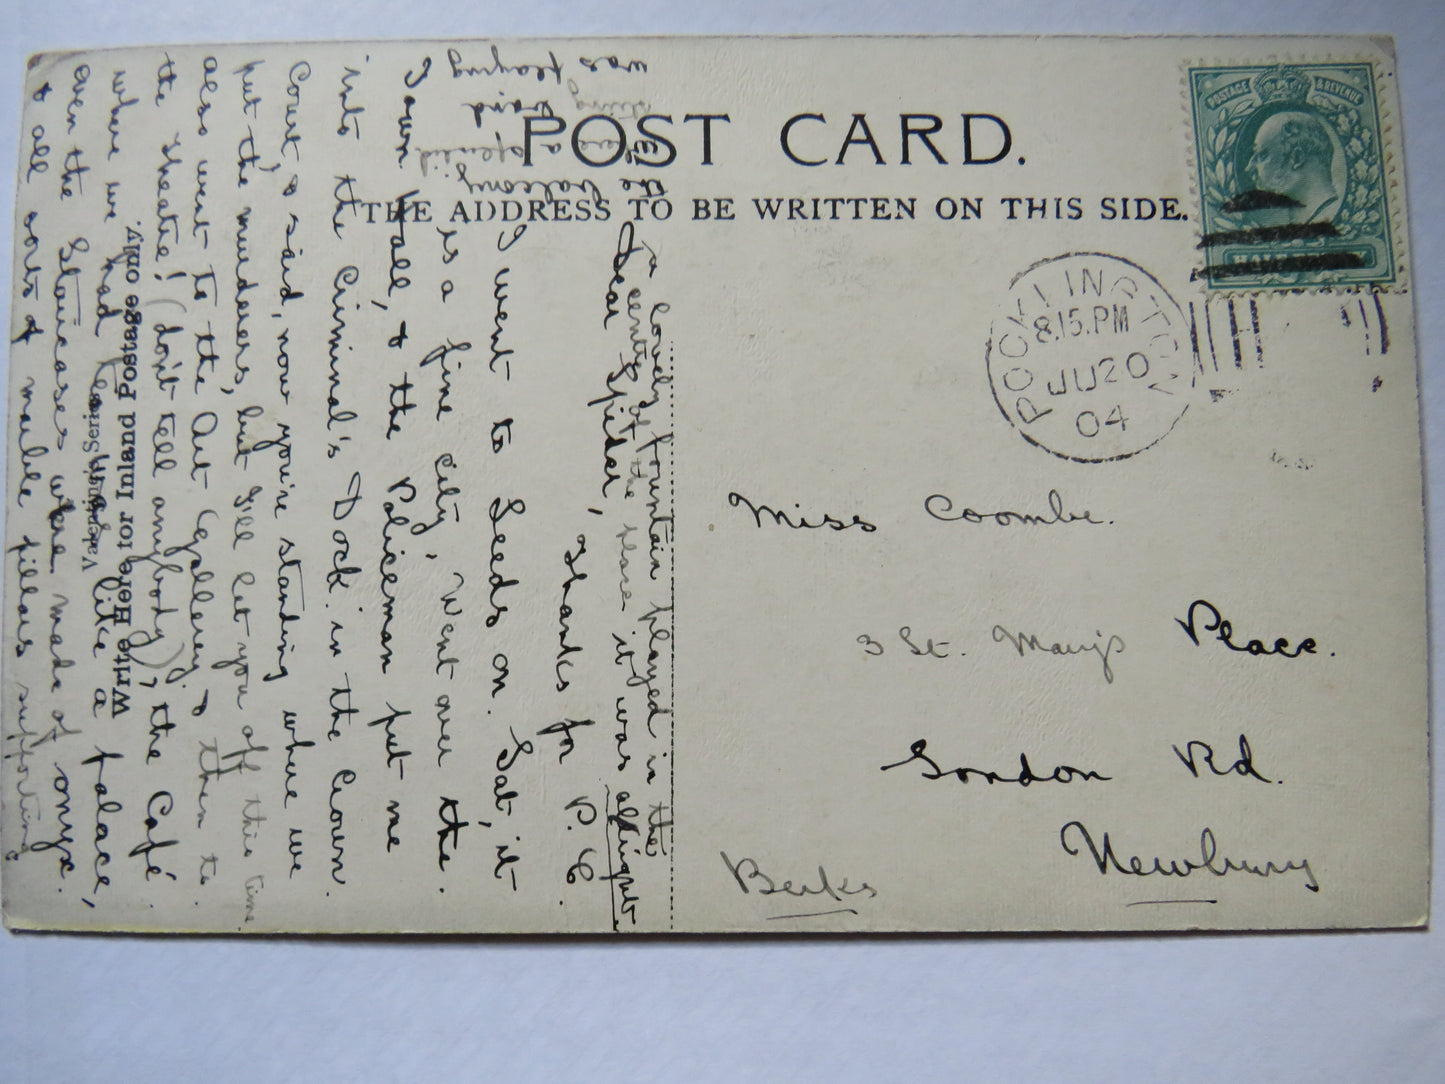 POST CARD.
THE ADDRESS TO BE WRITTEN ON THIS SIDE.
POSTAGE & REVENUE
POCKLINGTON
8.15.PM
JU 20
04
Miss Coombe.
3 St. Mary's Place.
London Rd.
Newbury
Berks
Write Here for Inland Postage only.
Valentine's Series
Dear Spider,
Thanks for P.C.
I went to Leeds on. Sat, it
is a fine city, Went over the
Town Hall, & the Policeman put me
into the Criminal's Dock in the Crown
Court, & said, now you're standing where we
put the murderers, but I'll let you off this time.
also went to the Art Gallery & then to
the theatre! (don't tell anybody), the Café
where we had tea was like a palace,
even the Staircases were made of onyx.
& all sorts of marble pillars supporting
the balcony
was playing
a lovely fountain played in the
centre of the place it was alright.